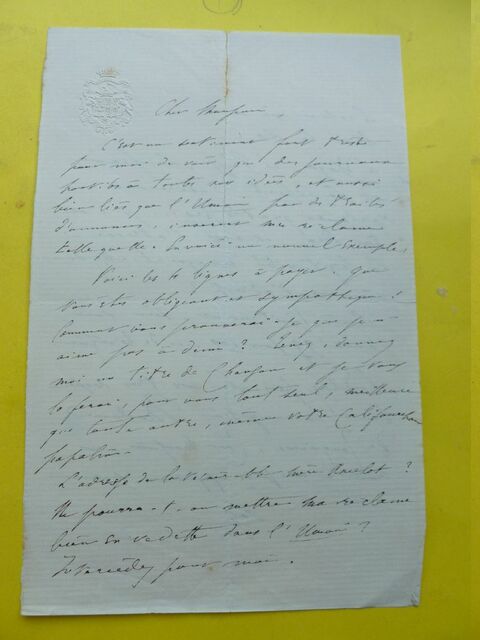 Cher Monsieur,
C'est un sentiment fort triste
pour moi de voir que des journaux
hostiles à toutes nos idées, et aussi
bien liés que l'Univers par des traités
d'annonces, insèrent ma réclame
telle quelle. En voici un nouvel exemple.
Voici les 10 lignes à payer. Que
vous êtes obligeant et sympathique !
Comment vous prouverai-je que je n'
aime pas à demi ? Tenez, donnez
moi un titre de Chanson et je vous
la ferai, pour vous tout seul, meilleure
que toute autre, même votre
papalin.
L'adresse de la vénérable mère ?
Ne pourra-t-on mettre ma réclame
bien en vedette dans l'Univers ?
Intercédez pour moi.